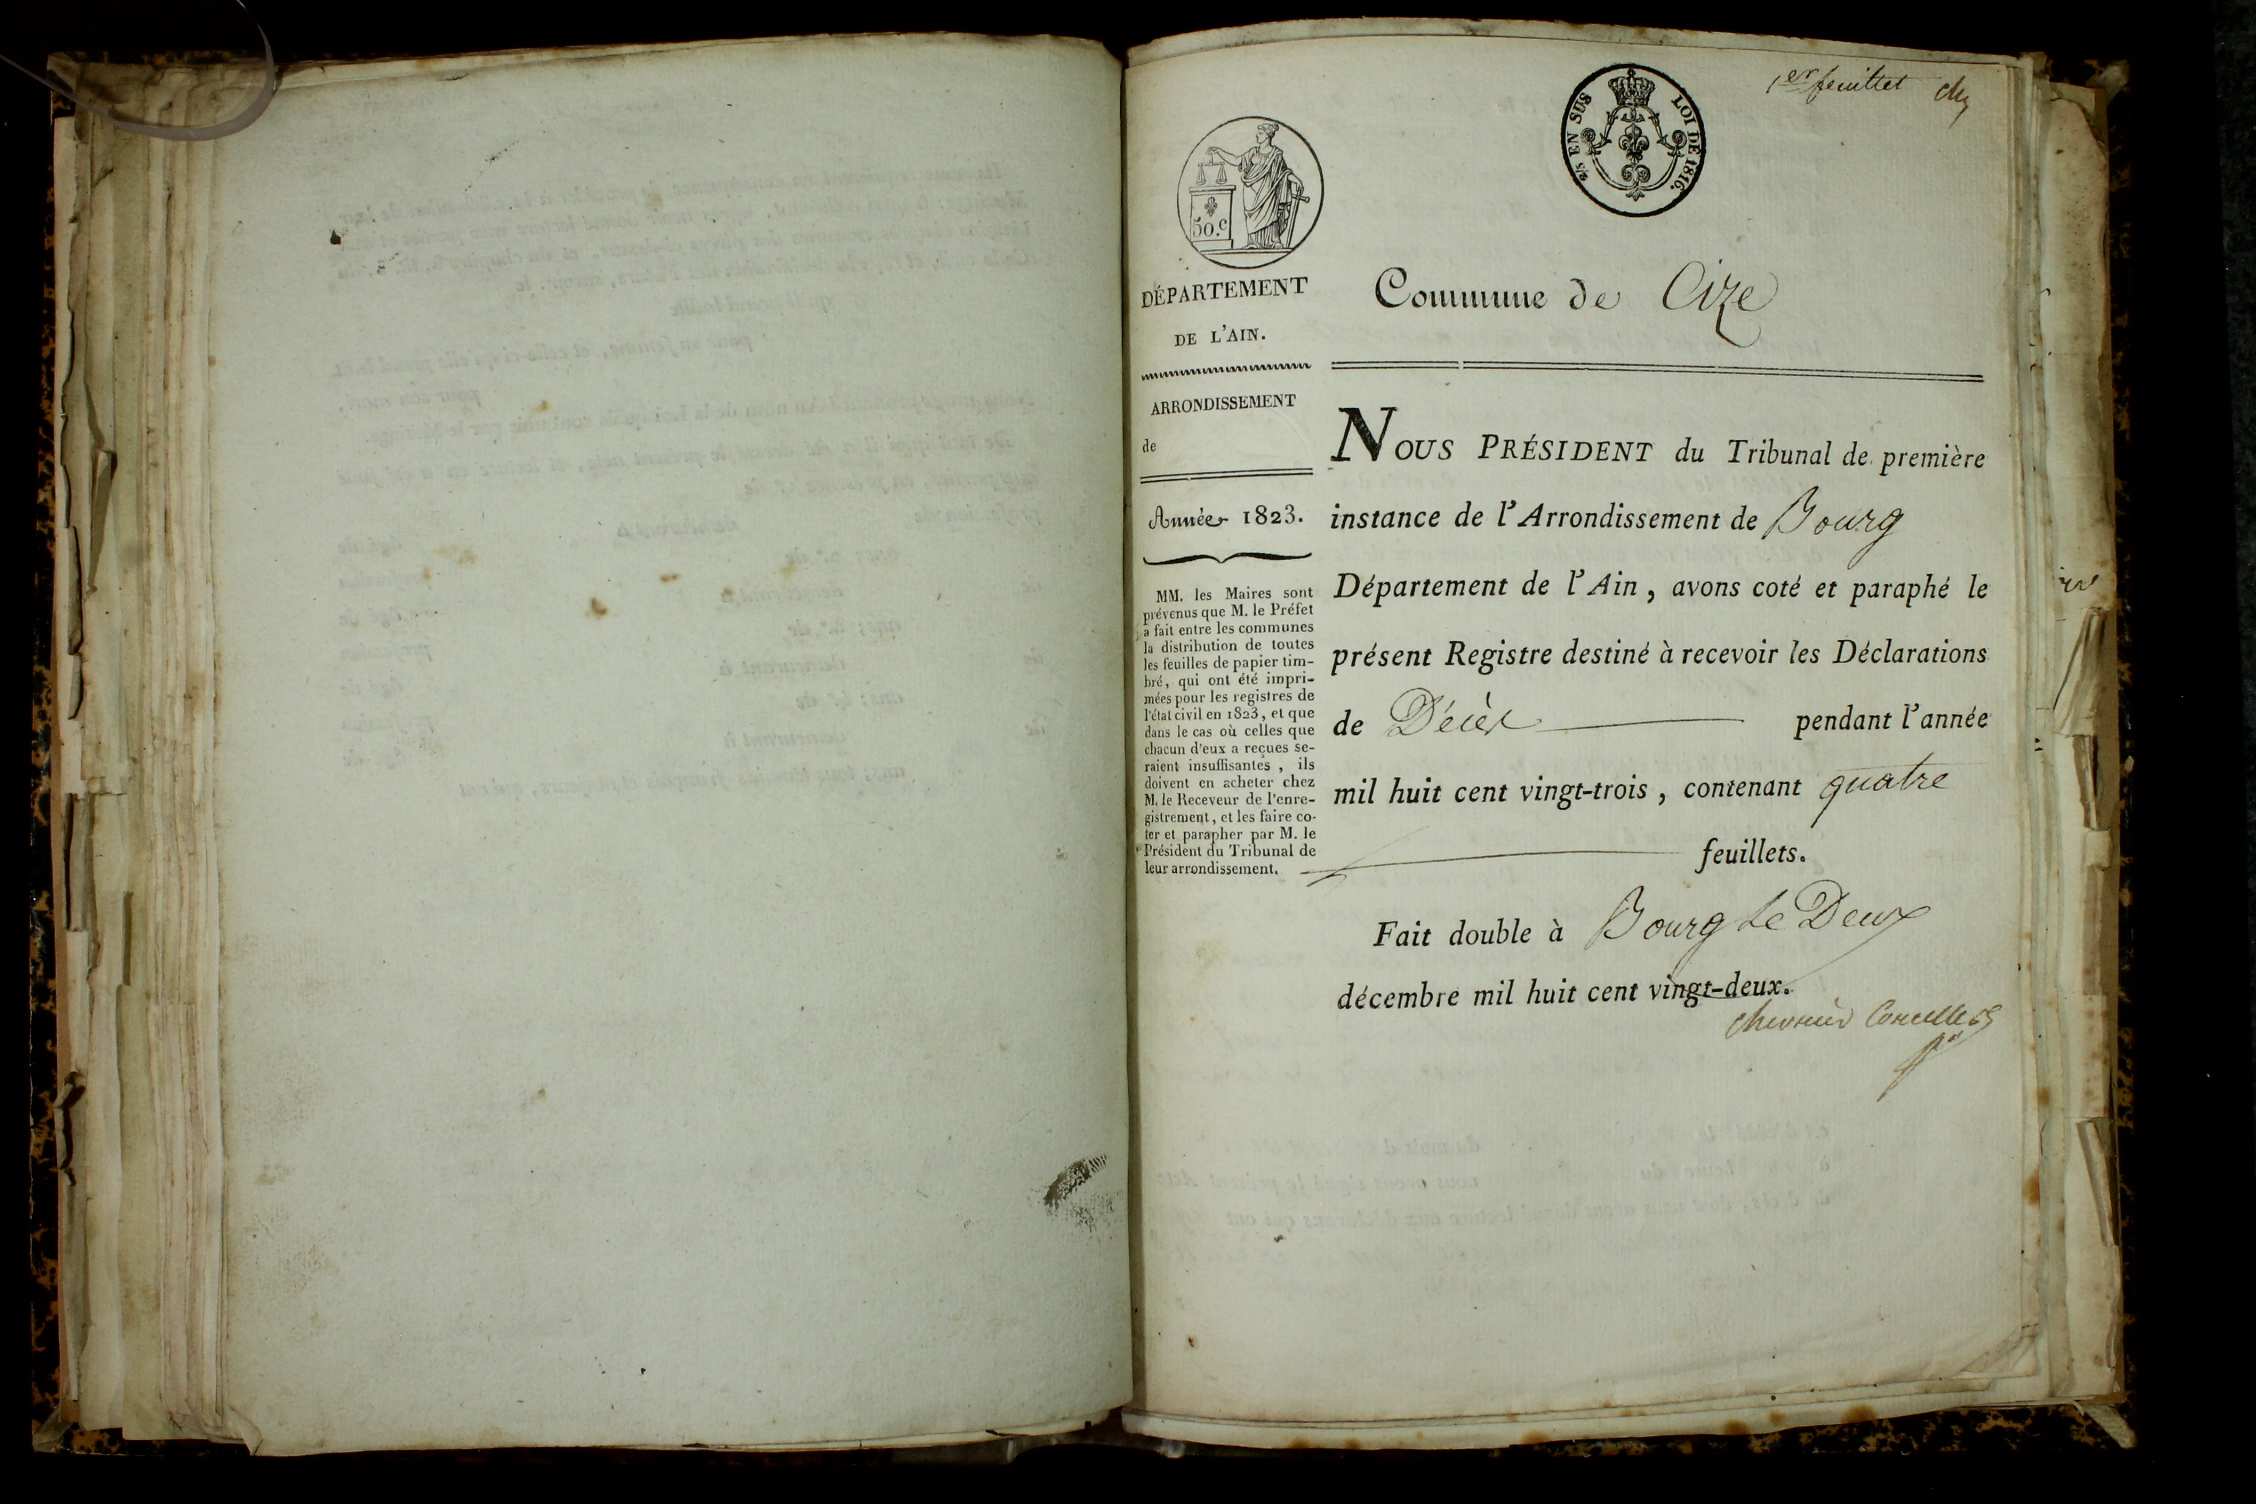 1er feuillet
2/5 EN SUS LOI DE 1816.
50.c
DÉPARTEMENT
DE L'AIN.
ARRONDISSEMENT
de
Année 1823.
MM. les Maires sont
prévenus que M. le Préfet
a fait entre les communes
la distribution de toutes
les feuilles de papier tim-
bré, qui ont été impri-
mées pour les registres de
l'état civil en 1823, et que
dans le cas où celles que
chacun d'eux a reçues se-
raient insuffisantes, ils
doivent en acheter chez
M. le Receveur de l'enre-
gistrement, et les faire co-
ter et parapher par M. le
Président du Tribunal de
leur arrondissement.
Commune de Cize
NOUS PRÉSIDENT du Tribunal de première
instance de l'Arrondissement de Bourg
Département de l'Ain, avons coté et paraphé le
présent Registre destiné à recevoir les Déclarations
de Décès pendant l'année
mil huit cent vingt-trois, contenant quatre
feuillets.
Fait double à Bourg Le Deux
décembre mil huit cent vingt-deux.